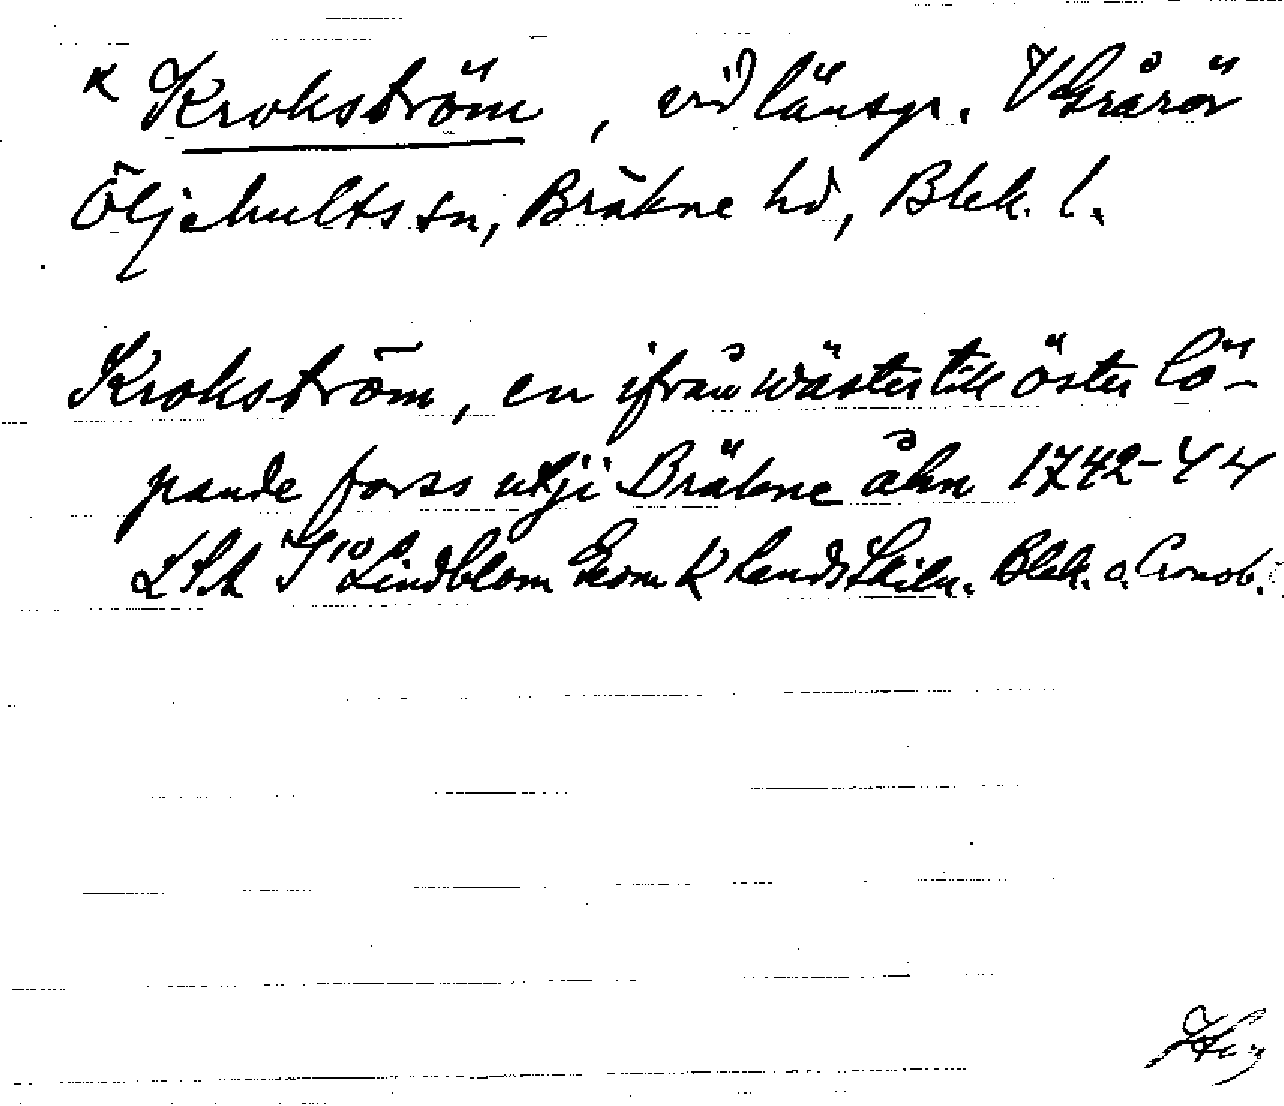 K Krokström, vid länsgr. V Gårör
Öljehults sn, Bräkne hd, Blek. l.
Krokström, en ifrån wäster till öster lö-
pande forss utji Bräkne åhn 1742-44
LSA Lindblom Geom K Landsskiln. Blek. o. Cronob.